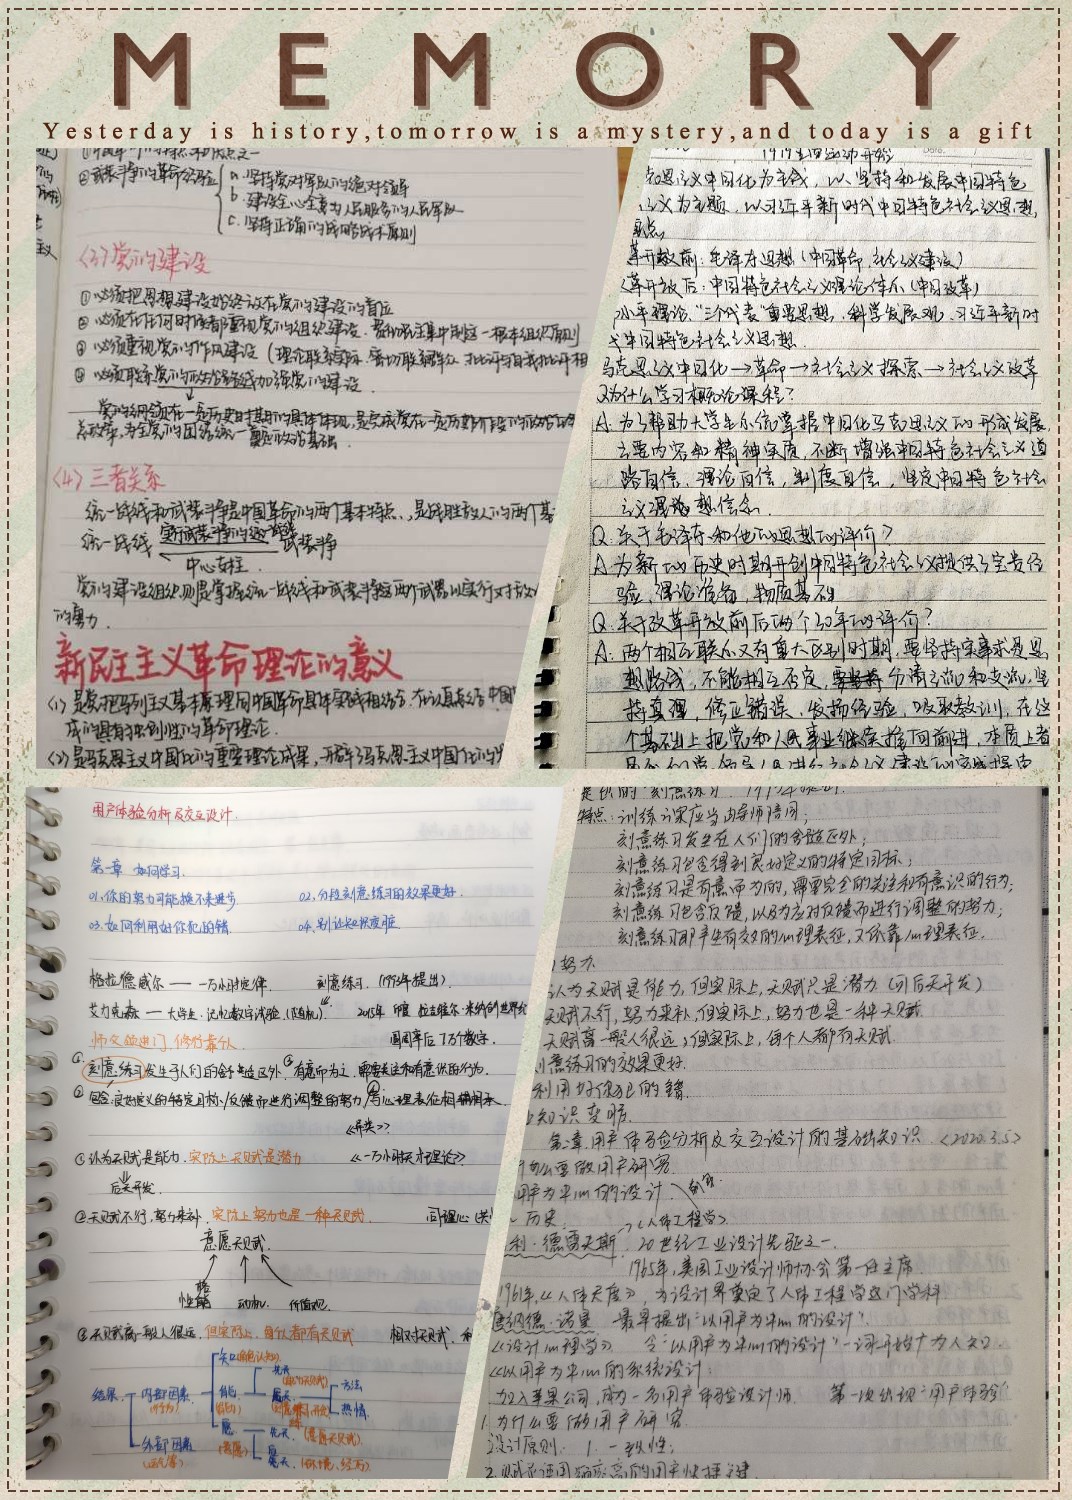 MEMORY
Yesterday is history,tomorrow is a mystery,and today is a gift
②武装斗争的革命经验
a. 坚持党对军队的绝对领导
b. 建设全心全意为人民服务的人民军队
c. 坚持正确的战略战术原则
(3)党的建设
①必须把思想建设始终放在党的建设的首位
②必须在任何时候都重视党的组织建设
③必须重视党的作风建设(理论联系实际、密切联系群众、批评与自我批评相
④必须联系党的政治路线加强党的建设.
(4)三者关系
统一战线和武装斗争是中国革命的两个基本特点、是战胜敌人的两个基
统一战线 实行武装斗争的统一战线 武装斗争
中心支柱.
党的建设组织则是掌握统一战线和武装斗争这两个武器以实行对敌
的努力.
新民主主义革命理论的意义
(2)是马克思主义中国化的重要理论成果,开辟了马克思主义中国化的
克思主义中国化为主线,以坚持和发展中国特色
主义为主题,以习近平新时代中国特色社会主义思想
重点.
革开放前:毛泽东思想(中国革命、社会主义建设)
革开放后:中国特色社会主义理论体系(中国改革)
小平理论、“三个代表”重要思想、科学发展观、习近平新时
代中国特色社会主义思想.
马克思主义中国化→革命→社会主义探索→社会主义改革
Q为什么学习概论课程?
A:为了帮助大学生系统掌握中国化马克思主义的形成发展、
主要内容和精神实质,不断增强中国特色社会主义道
路自信、理论自信、制度自信,坚定中国特色社会
主义理想信念.
Q:关于毛泽东和他的思想的评价?
A:为新的历史时期开创中国特色社会主义提供了宝贵经
验、理论准备、物质基础
Q:关于改革开放前后两个30年的评价?
A:两个相互联系又有重大区别的时期,要坚持实事求是思
想路线,不能相互否定,分清主流和支流,坚
持真理,修正错误,发扬经验,吸取教训,在这
个基础上把党和人民事业继续推向前进,本质上者
用户体验分析及交互设计
第一章 如何学习.
01.你的努力可能换不来进步. 02.分段刻意练习的效果更好.
03.如何利用好你犯的错. 04.别让知识变脏
格拉德威尔——一万小时定律. 刻意练习.(1993年提出)
艾力克森——大学生、记忆数字试验.(随机) 2015年 印度 拉吉维尔·米纳创世界纪
圆周率后7万个数字.
师父领进门,修行靠个人
①刻意练习发生于人们的舒适区外,有意而为之、需要关注和有意识的行为.
②包含良好定义的特定目标/反馈而进行调整的努力/与心理表征相辅相承
《异类》?
①认为天赋是能力,实际上天赋是潜力 《一万小时天才理论》?
后天开发.
②天赋不行,努力来补. 实际上努力也是一种天赋. 同理心
意愿天赋.
性格 动机. 价值观.
③天赋高一般人很远,但实际上,每个人都有天赋 相对天赋.
结果 内部因素 知 能 愿 先天 后天 方法 热情.
外部因素
特点:训练课应当由导师陪同;
刻意练习发生在人们的舒适区外;
刻意练习包含得到良好定义的特定目标;
刻意练习是有意而为的,需要完全的关注和有意识的行为;
刻意练习包含反馈,以及为应对反馈而进行调整的努力;
刻意练习即产生有效的心理表征,又依靠心理表征.
努力
认为天赋是能力,但实际上,天赋只是潜力(可后天开发)
天赋不行,努力来补,但实际上,努力也是一种天赋
天赋高一般人很远,但实际上,每个人都有天赋.
刻意练习的效果更好.
利用好你犯的错.
知识变脏.
第二章.用户体验分析及交互设计的基础知识.<2020.3.5>
什么要做用户研究.
用户为中心的设计
历史. 《人体工程学》
利·德雷夫斯 20世纪工业设计先驱之一.
1965年,美国工业设计师协会第一任主席
1961年,《人体尺度》,为设计界奠定了人体工程学这门学科
唐纳德·诺曼 最早提出“以用户为中心的设计”
《设计心理学》 令“以用户为中心的设计”一词开始广为人知.
《以用户为中心的系统设计:
加入苹果公司,成为一名用户体验设计师. 第一次出现“用户体验”
1.为什么要做用户研究.
设计原则: 1.一致性;